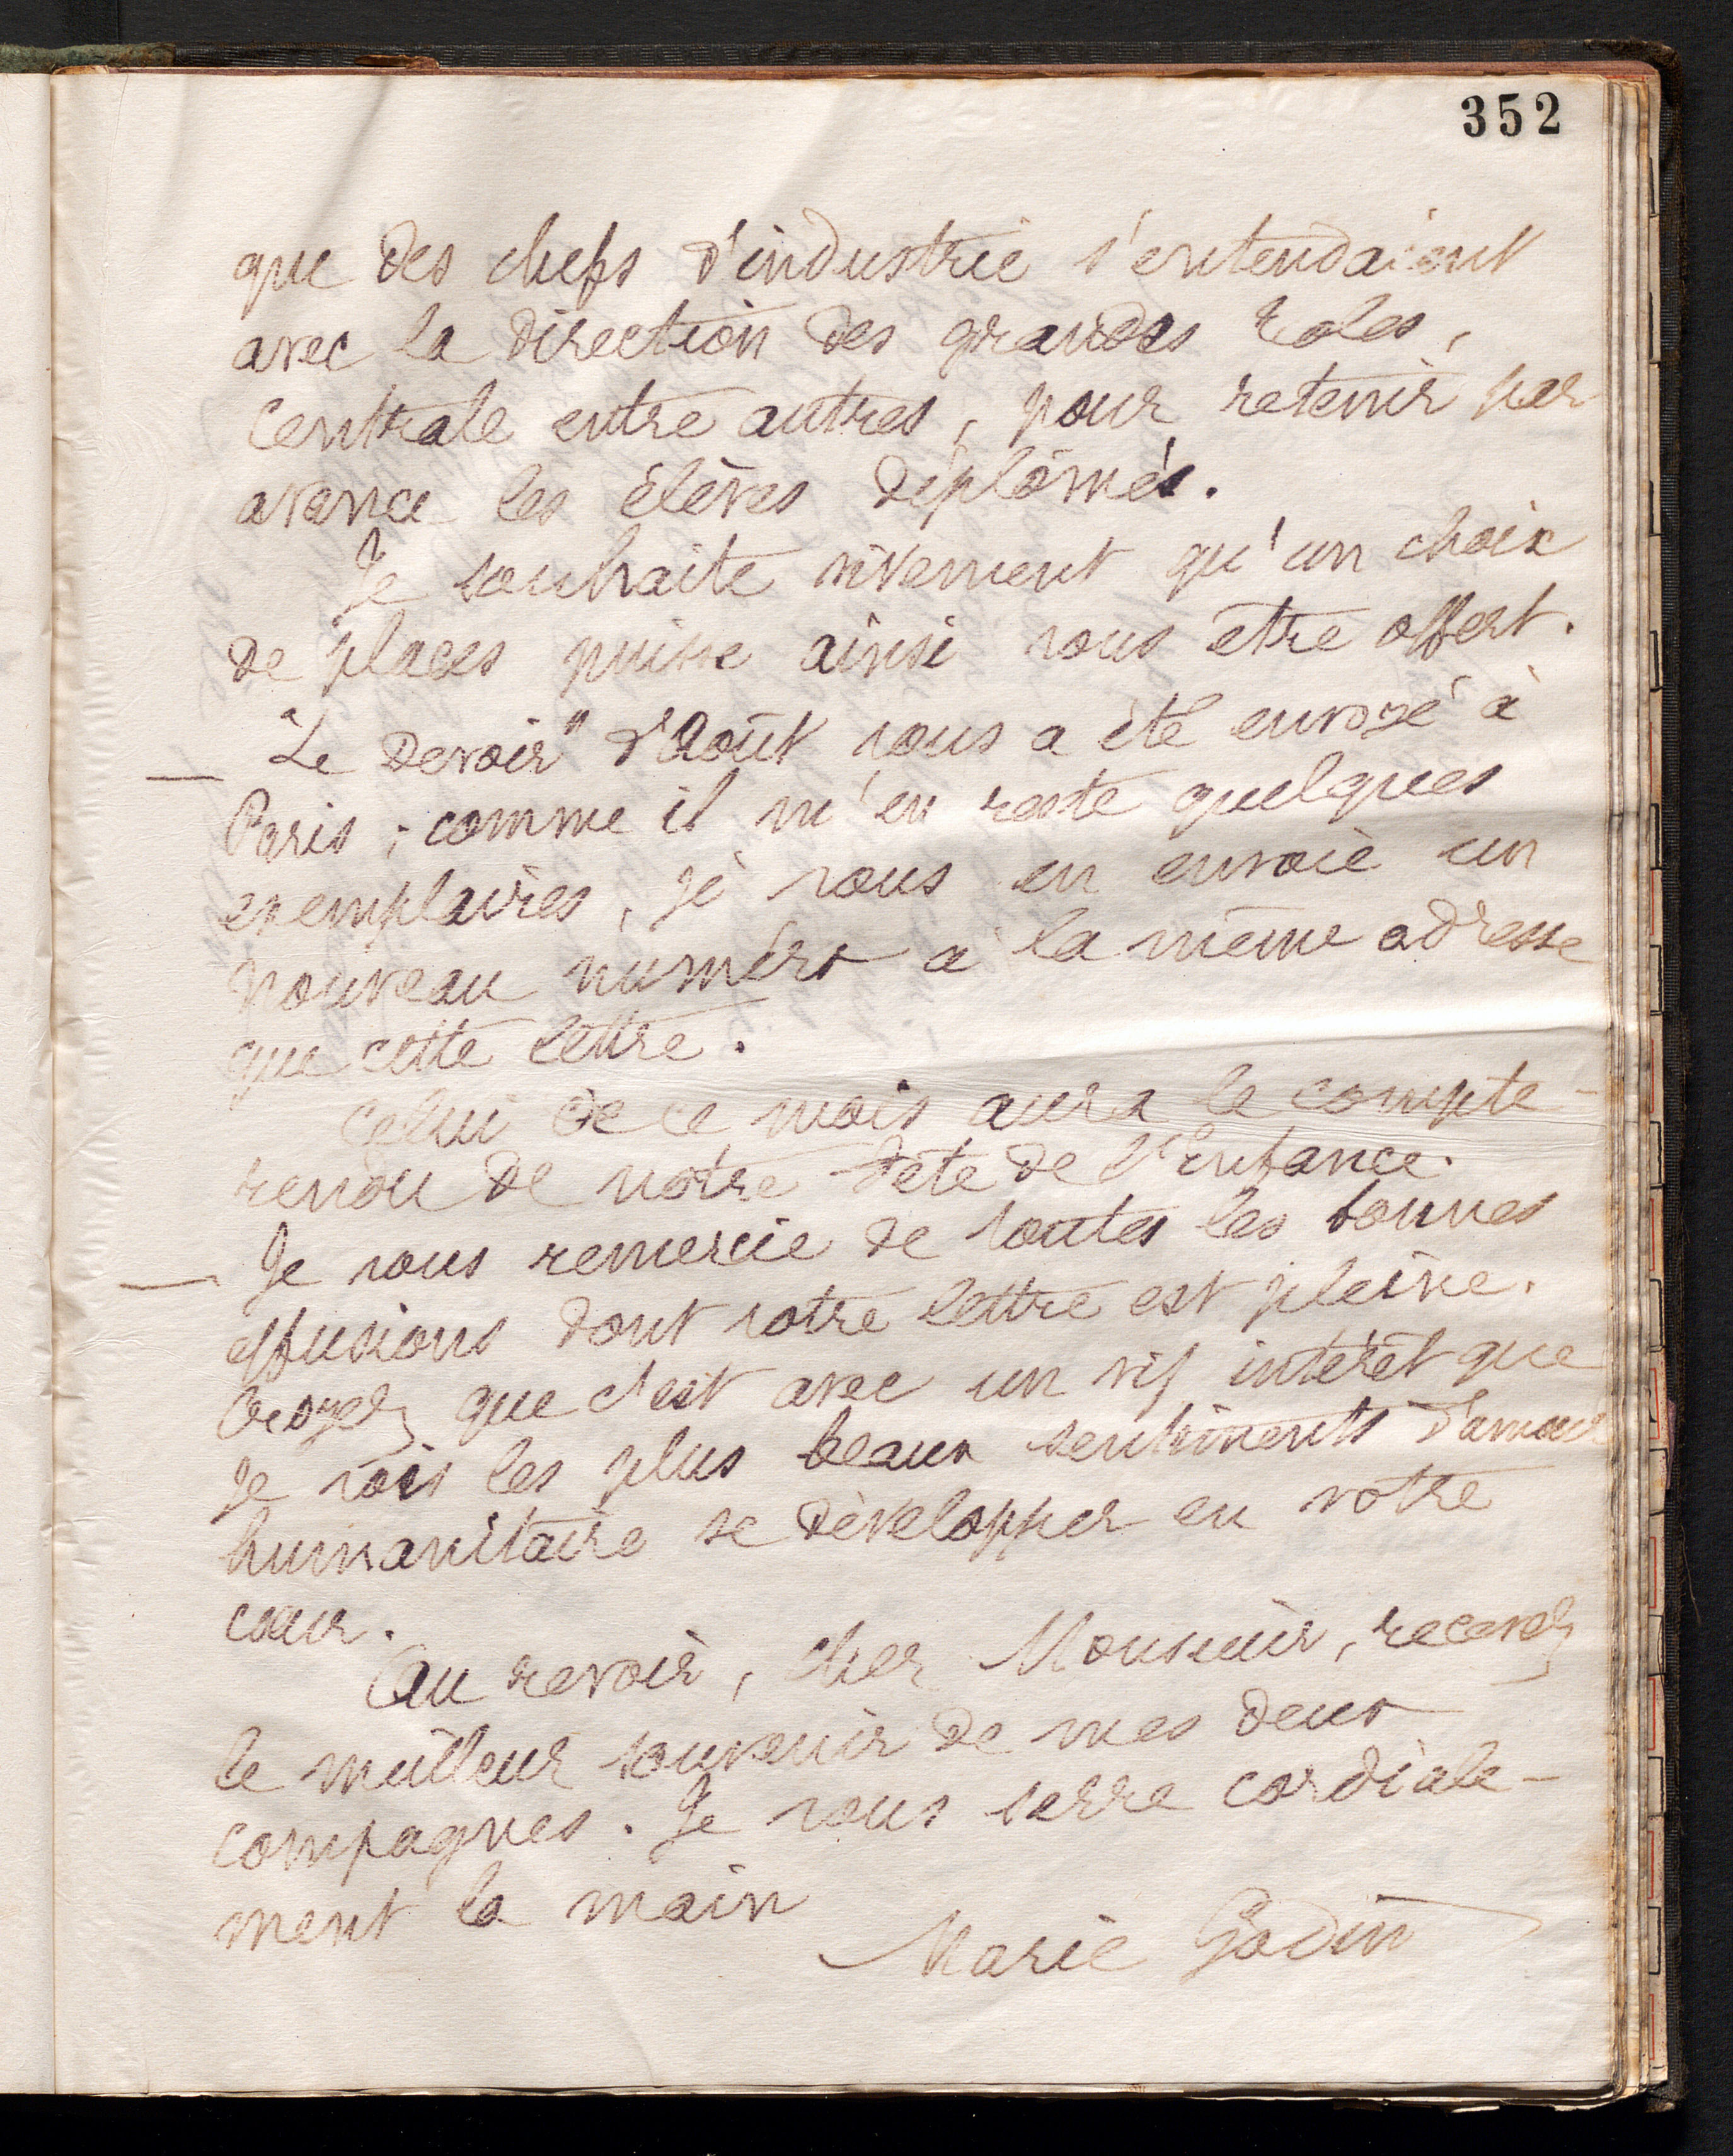 352
que des chefs d'industrie s'entendaient
avec la direction des grandes Ecoles,
Centrale entre autres, pour retenir par
avance les élèves diplômés.
Je souhaite vivement qu'un choix
de places puisse ainsi vous être offert.
— "Le Devoir" d'Août vous a été envoyé à
Paris ; comme il m'en reste quelques
exemplaires, je vous en envoie un
nouveau numéro à la même adresse
que cette lettre.
Celui de ce mois aura le compte-
rendu de notre Fête de l'Enfance.
— Je vous remercie de toutes les bonnes
effusions dont votre lettre est pleine.
Croyez que c'est avec un vif intérêt que
je vois les plus beaux sentiments d'amour
humanitaire se développer en votre
cœur.
Au revoir, cher Monsieur, recevez
le meilleur souvenir de mes deux
compagnes. Je vous serre cordiale-
ment la main
Marie Godin